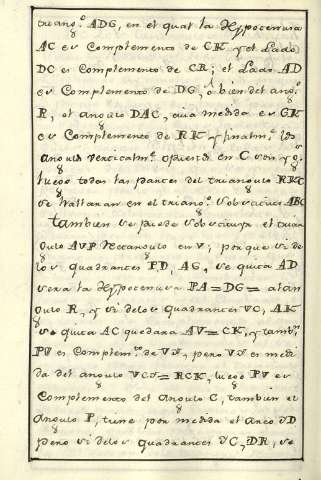 triang.º ADG, en el qual la Hypotenusa
AC es Complemento de CK y el Lado
DC es Complemento de CR; el Lado AD
es Complemento de DG, ó bien del ang.º
R, el angulo DAC, cuia medida es GK
es Complemento de RK y finalm.te los
angulos verticalm.te opuestos en C son yg.s
luego todas las partes del triangulo RKC
se hallaran en el triang.º
tambien se puede substituir el trian
gulo AVP Rectangulo en V; porque si de
los quadrantes PD, AG, se quita AD
sera la Hypotenusa PA=DG= al an
gulo R, y si delos quadrantes VC, AK
se quita AC quedara AV=CK, y tamb.n
PV es Complem.to de VS, pero VS es medi
da del angulo VCS=RCK, luego PV es
Complemento del Angulo C, tambien el
Angulo P, tiene por medida el Arco SD
pero si delos quadrantes SC, DR, se